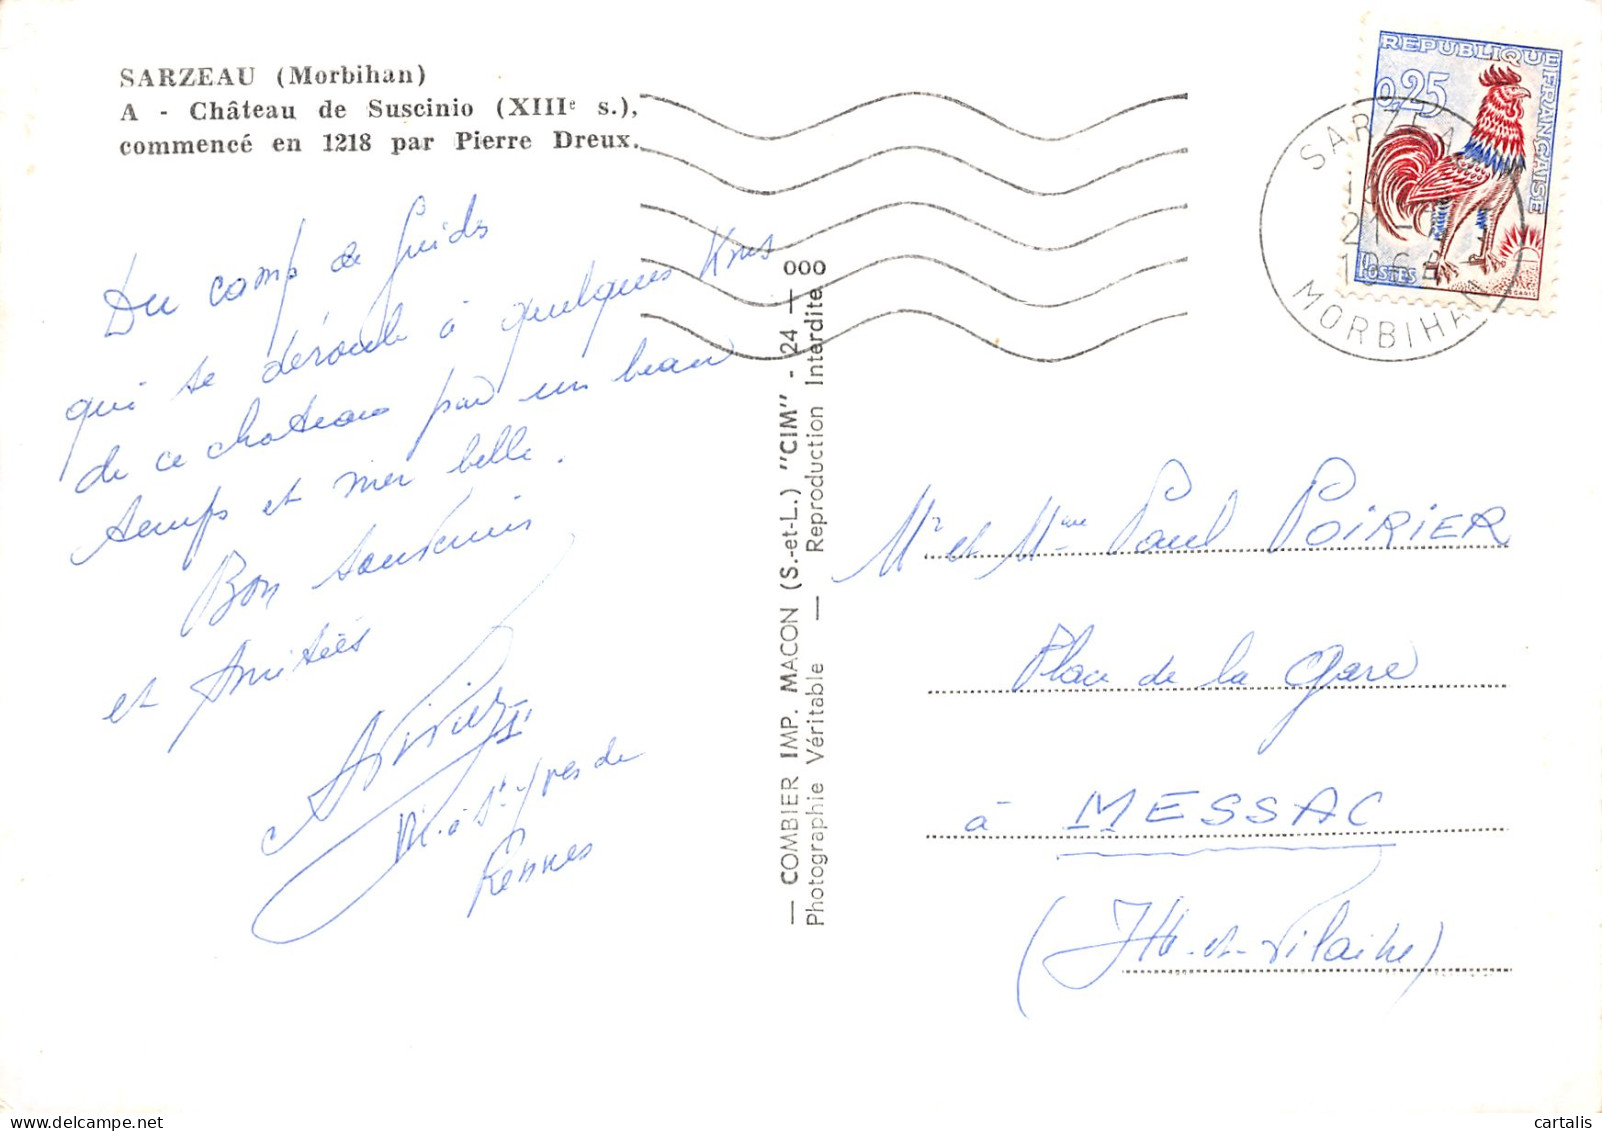 SARZEAU (Morbihan)
A - Château de Suscinio (XIIIe s.),
commencé en 1218 par Pierre Dreux.
Du camp de Guides
qui se déroule à quelques Kms
de ce chateau par un beau
temps et mer belle.
Bon souvenir
et Amitiés
St-Yves de
Rennes
— COMBIER IMP. MACON (S.-et-L.) "CIM" - 24 — 000
Photographie Véritable — Reproduction Interdite
REPUBLIQUE FRANÇAISE
0,25
POSTES
SARZEA
21-
MORBIHAN
Mr et Mme Paul POIRIER
Place de la Gare
à MESSAC
(Ille-et-Vilaine)
cartalis